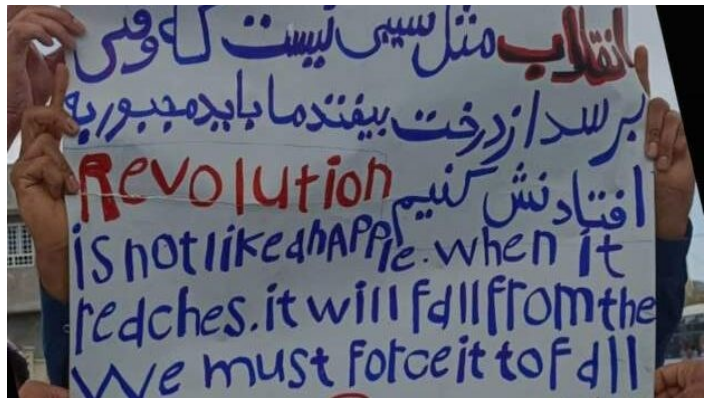 انقلاب مثل سیبی نیست که وقتی
برسد از درخت بیفتد ما باید مجبور به
افتادنش کنیم
Revolution
is not like an apple. when it
reaches. it will fall from the
We must force it to fall